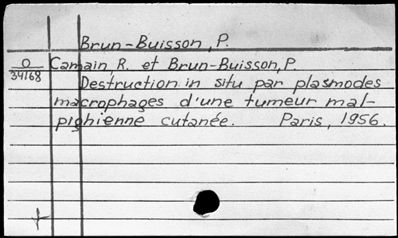 Brun-Buisson, P.
O Camain, R. et Brun-Buisson, P.
34168 Destruction in situ par plasmodes
macrophages d'une tumeur mal-
pighienne cutanée. Paris, 1956.